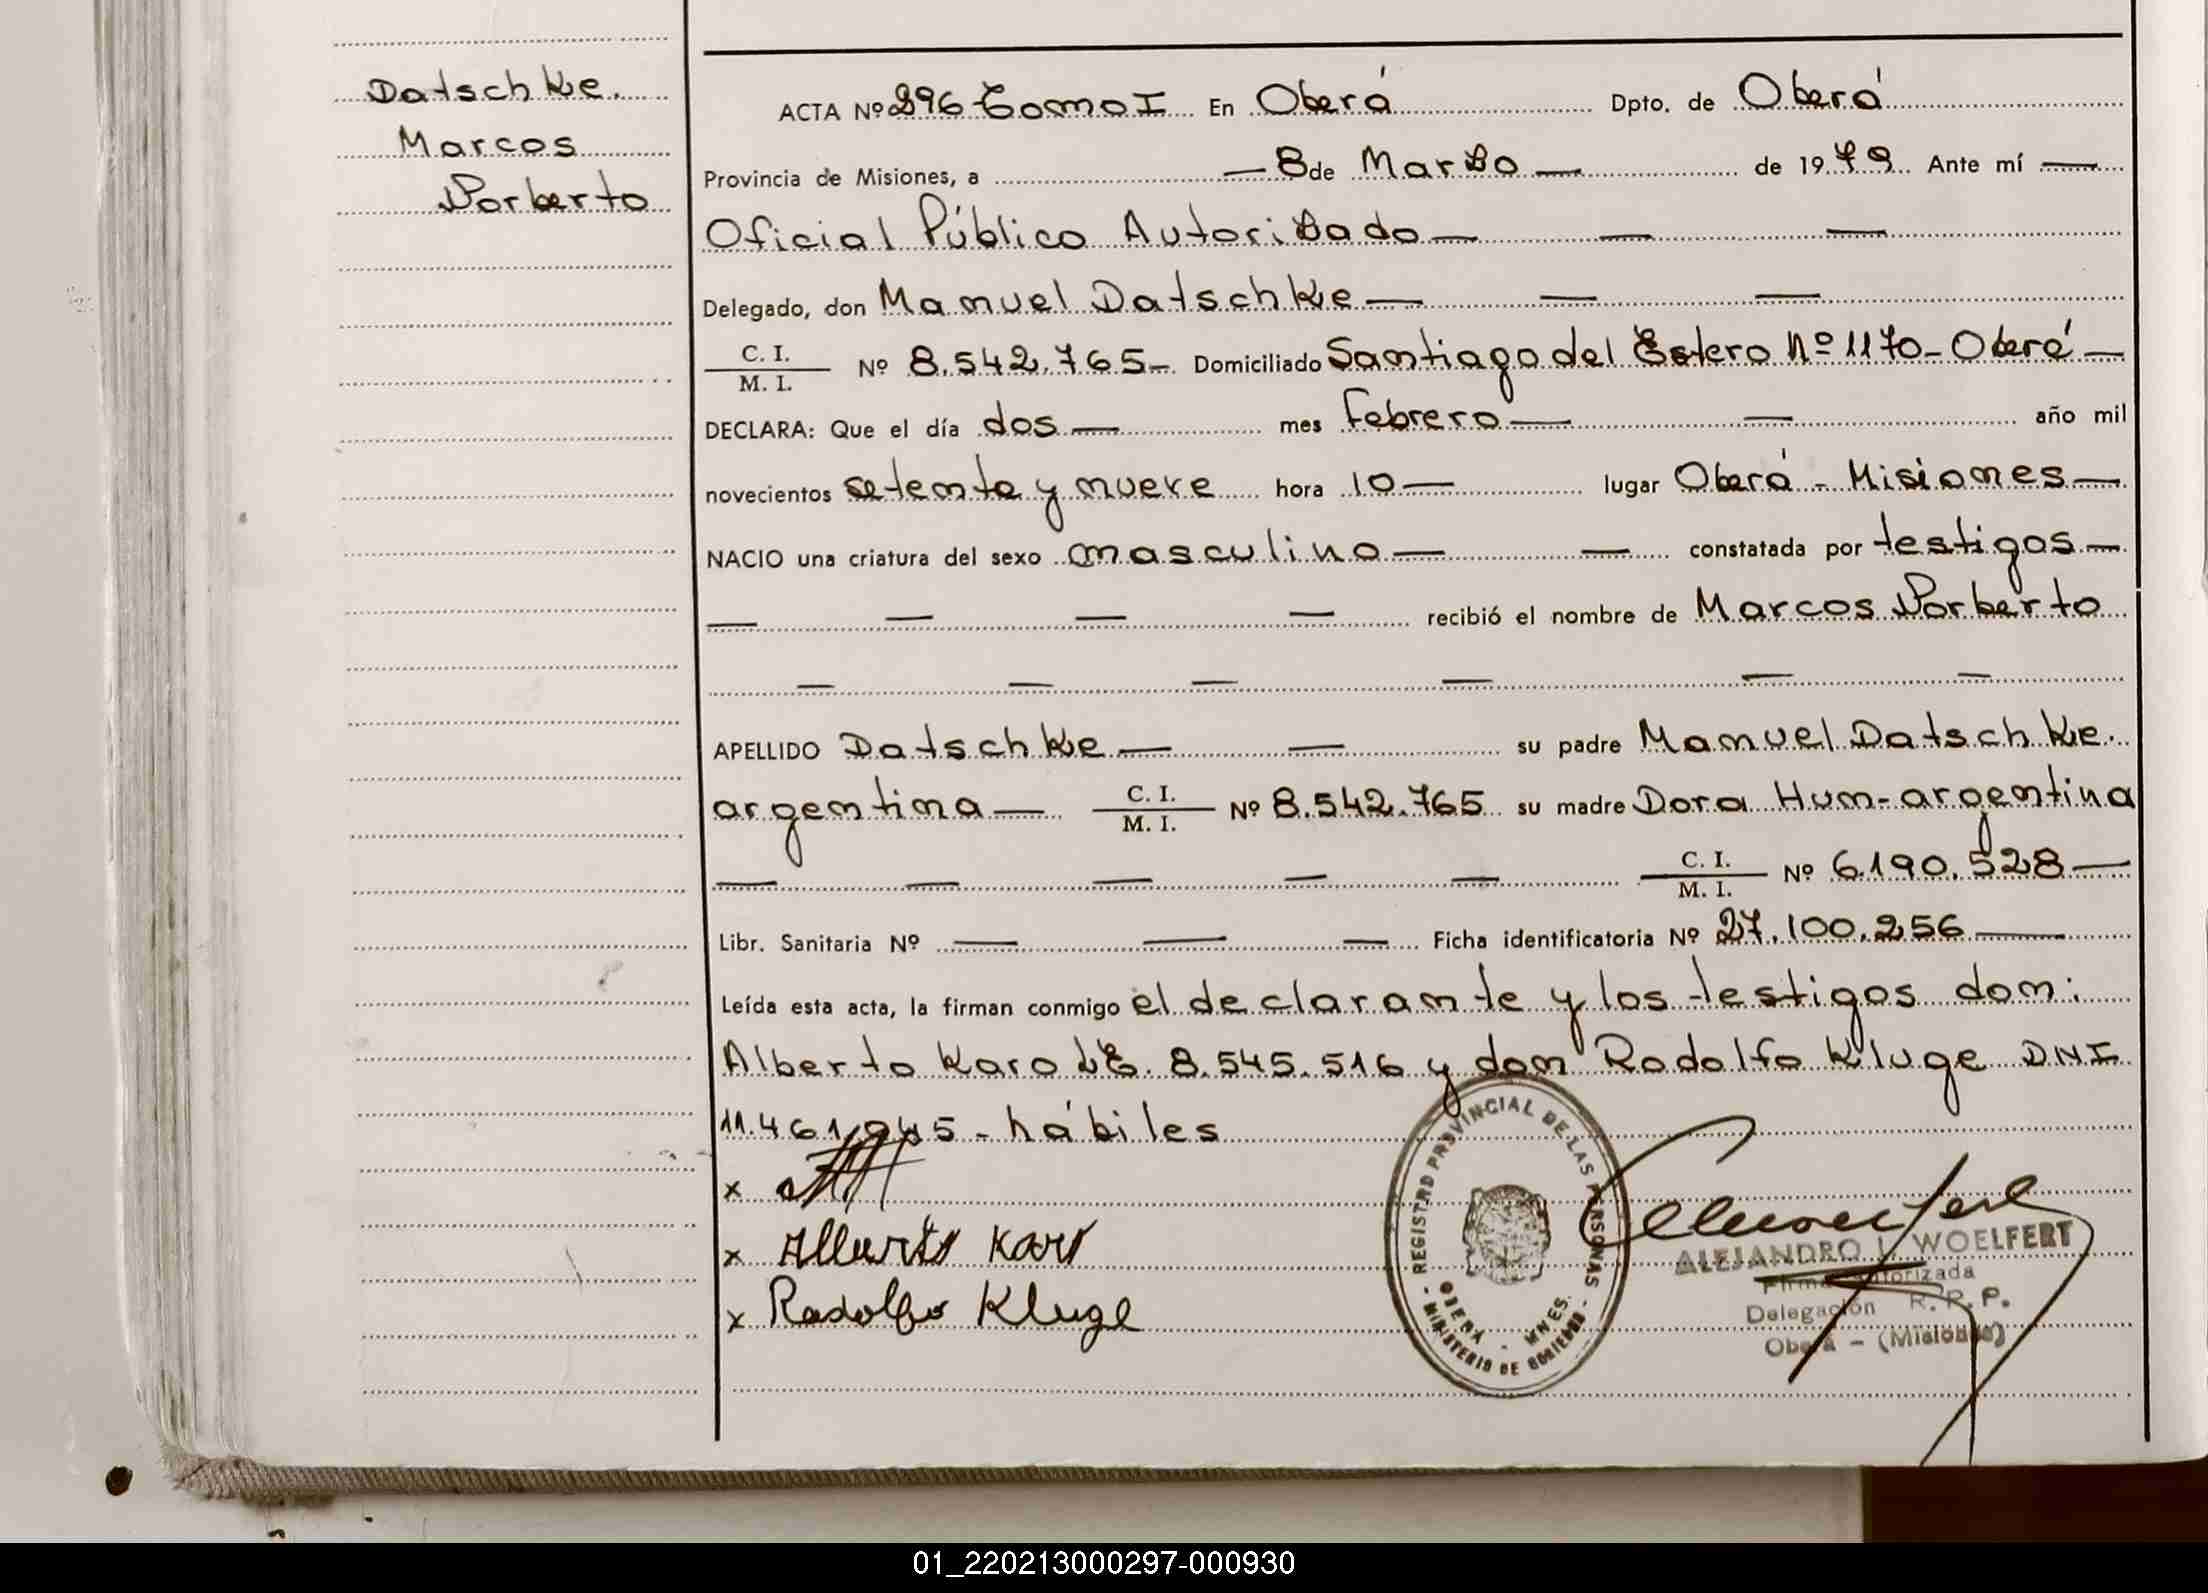 Datschke.
Marcos
Norberto
ACTA Nº 296 Tomo I En Oberá Dpto. de Oberá
Provincia de Misiones, a — 8 de Marzo — de 1979. Ante mí —
Oficial Público Autorizado — — —
Delegado, don Manuel Datschke — — —
C. I. / M. I. Nº 8.542.765- Domiciliado Santiago del Estero Nº 1170 - Oberá —
DECLARA: Que el día dos — mes febrero — — año mil
novecientos setenta y nueve hora 10 — lugar Oberá - Misiones —
NACIO una criatura del sexo masculino — — constatada por testigos —
— — — — recibió el nombre de Marcos Norberto
— — — — — —
APELLIDO Datschke — — su padre Manuel Datschke.
argentina — C. I. / M. I. Nº 8.542.765 su madre Dora Hum - argentina
— — — — — C. I. / M. I. Nº 6.190.528 —
Libr. Sanitaria Nº — — — Ficha identificatoria Nº 27.100.256 —
Leída esta acta, la firman conmigo el declarante y los testigos don:
Alberto Karo L.E. 8.545.516 y don Rodolfo Kluge D.N.I
11.461.945 - hábiles
x
x Alberto Karo
x Rodolfo Kluge
REGISTRO PROVINCIAL DE LAS PERSONAS
OBERÁ - MNES.
- MINISTERIO DE GOBIERNO -
ALEJANDRO L. WOELFERT
Firma Autorizada
Delegación R. P. P.
Oberá - (Misiones)
01_220213000297-000930